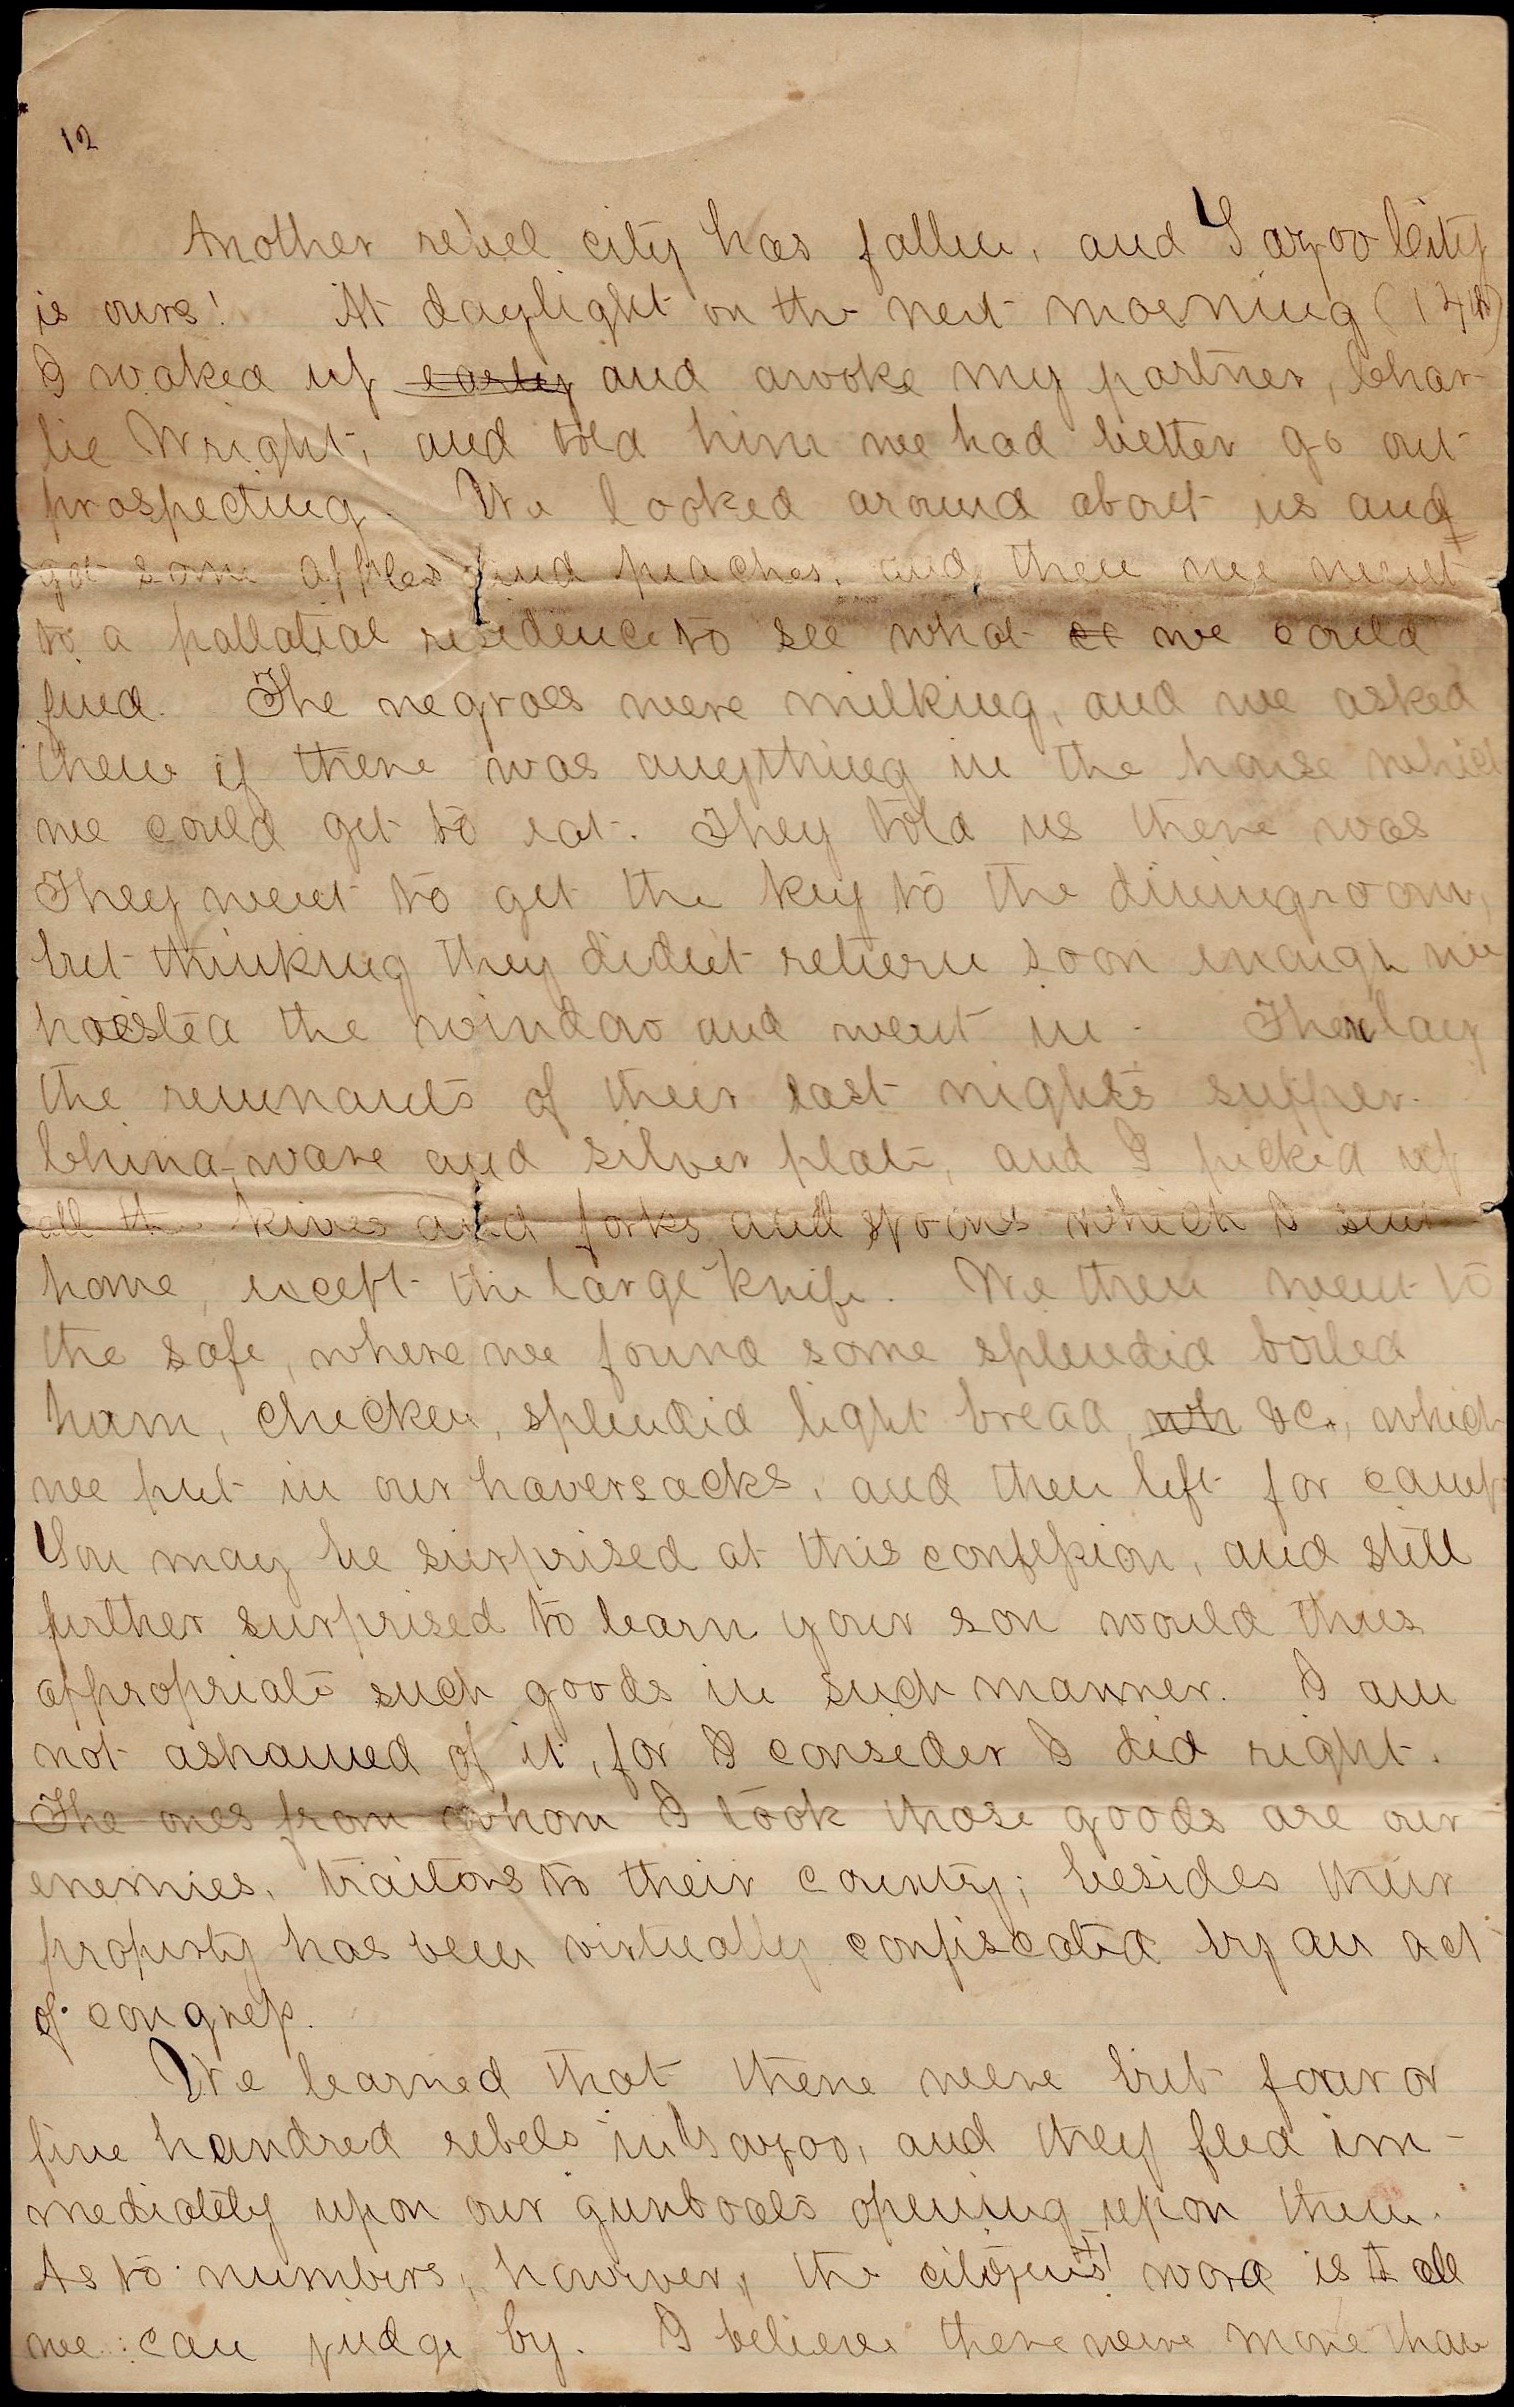 12
Another rebel city has fallen, and Yazoo City
is ours! At daylight on the next morning (14th)
I waked up early and awoke my partner, Char-
lie Wright, and told him we had better go out
prospecting. We looked around about us and
got some apples and peaches, and then we went
to a pallatial residence to see what we could
find. The negroes were milking, and we asked
them if there was anything in the house which
we could get to eat. They told us there was
They went to get the key to the diningroom,
but thinking they didn't return soon enough we
hoisted the window and went in. There lay
the remnants of their last night's supper.
China-ware and silver plate, and I picked up
all the knives and forks and spoons which I sent
home, except the large knife. We then went to
the safe, where we found some splendid boiled
ham, chicken, splendid light bread, wh &c., which
we put in our haversacks, and then left for camp
You may be surprised at this confession, and still
further surprised to learn your son would thus
appropriate such goods in such manner. I am
not ashamed of it, for I consider I did right.
The ones from whom I took those goods are our
enemies, traitors to their country; besides their
property has been virtually confiscated by an act
of congress.
We learned that there were but four or
five hundred rebels in Yazoo, and they fled im-
mediately upon our gunboats opening upon them.
As to numbers, however, the citizens' word is all
we can judge by. I believe there were more than